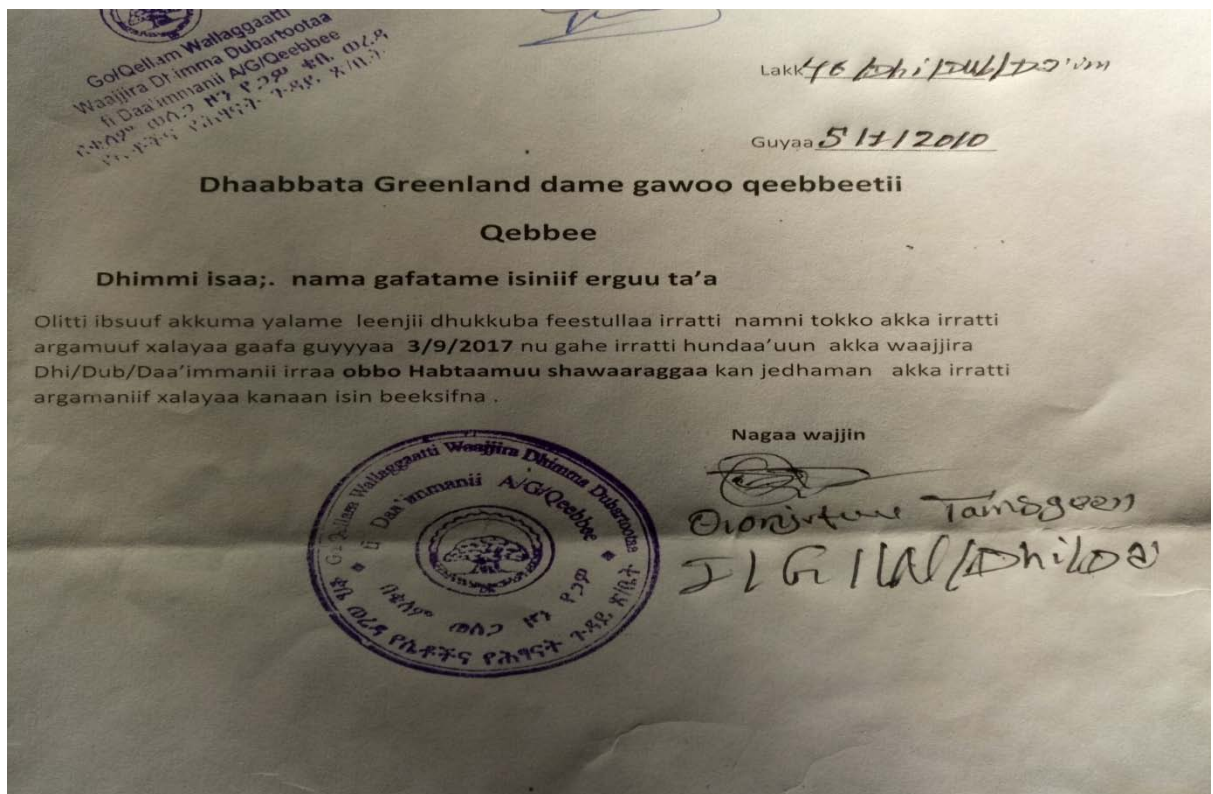 Go/Qellam Wallaggaatti
Waajjira Dhimma Dubartootaa
fi Daa'immanii A/G/Qeebbee
Lakk 46/Dhi/Dub/Da'im
Guyaa 5/7/2010
Dhaabbata Greenland dame gawoo qeebbeetii
Qebbee
Dhimmi isaa;. nama gafatame isiniif erguu ta'a
Olitti ibsuuf akkuma yalame leenjii dhukkuba feestullaa irratti namni tokko akka irratti
argamuuf xalayaa gaafa guyyyaa 3/9/2017 nu gahe irratti hundaa'uun akka waajjira
Dhi/Dub/Daa'immanii irraa obbo Habtaamuu shawaaraggaa kan jedhaman akka irratti
argamaniif xalayaa kanaan isin beeksifna .
Nagaa wajjin
Tamsgeen
I/G/W/Dhi/Da
Go/Qellam Wallaggaatti Waajjira Dhimma Dubartootaa
fi Daa'immanii A/G/Qeebbee
በቄለም ወለጋ ዞን የጋዎ
ቀቤ ወረዳ የሴቶችና የሕፃናት ጉዳይ ጽ/ቤት